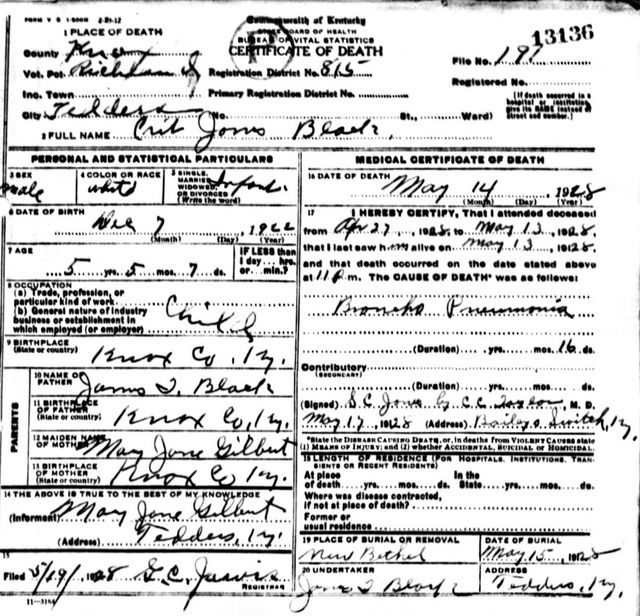 FORM V S 1-500M 2-29-12
Commonwealth of Kentucky
STATE BOARD OF HEALTH
BUREAU OF VITAL STATISTICS
CERTIFICATE OF DEATH
13136
1 PLACE OF DEATH
County Knox
Vot. Pct. Richland
Registration District No. 815
File No. 197
Inc. Town
Primary Registration District No.
Registered No.
City Tedders No. St., Ward)
(If death occurred in a hospital or institution, give its NAME instead of street and number.)
2 FULL NAME Crit Jones Black
PERSONAL AND STATISTICAL PARTICULARS
3 SEX male
4 COLOR OR RACE white
5 SINGLE, MARRIED, WIDOWED, OR DIVORCED (Write the word) Infant
6 DATE OF BIRTH Dec 7, 1922
(Month) (Day) (Year)
7 AGE 5 yrs. 5 mos. 7 ds.
IF LESS than 1 day...hrs. or...min.?
8 OCCUPATION
(a) Trade, profession, or particular kind of work
(b) General nature of industry business or establishment in which employed (or employer) Child
9 BIRTHPLACE (State or country) Knox Co, Ky.
PARENTS
10 NAME OF FATHER James T. Black
11 BIRTHPLACE OF FATHER (State or country) Knox Co, Ky.
12 MAIDEN NAME OF MOTHER May Jone Gilbert
13 BIRTHPLACE OF MOTHER (State or country) Knox Co Ky.
14 THE ABOVE IS TRUE TO THE BEST OF MY KNOWLEDGE
(Informant) May Jone Gilbert
(Address) Tedders, Ky.
15
Filed 5/19/1928 G.C. Jarvis REGISTRAR
11-3184
MEDICAL CERTIFICATE OF DEATH
16 DATE OF DEATH May 14, 1928
(Month) (Day) (Year)
17 I HEREBY CERTIFY, That I attended deceased
from Apr 27, 1928 to May 13, 1928,
that I last saw him alive on May 13, 1928,
and that death occurred on the date stated above
at 11 P.m. The CAUSE OF DEATH* was as follows:
Broncho Pneumonia
(Duration) yrs. mos. 16 ds.
Contributory
(SECONDARY)
(Duration) yrs. mos. ds.
(Signed) S.C. Jones by C.C. Taylor, M. D.
May 17, 1928 (Address) Baileys Switch, Ky.
*State the DISEASE CAUSING DEATH, or, in deaths from VIOLENT CAUSES state
(1) MEANS OF INJURY; and (2) whether ACCIDENTAL, SUICIDAL or HOMICIDAL.
18 LENGTH OF RESIDENCE (FOR HOSPITALS, INSTITUTIONS, TRANSIENTS OR RECENT RESIDENTS)
At place of death yrs. mos. ds. In the State yrs. mos. ds.
Where was disease contracted, if not at place of death?
Former or usual residence
19 PLACE OF BURIAL OR REMOVAL New Bethel
DATE OF BURIAL May 15, 1928
20 UNDERTAKER James T Black
ADDRESS Tedders, Ky.